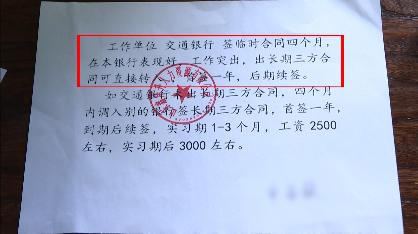 工作单位 交通银行 签临时合同四个月,
在本银行表现好,工作突出,出长期三方合
同可直接转 一年,后期续签。
如交通银行 出长期三方合同,四个月
内调入别的银行签长期三方合同,首签一年,
到期后续签,实习期1-3个月,工资2500
左右,实习期后3000左右。